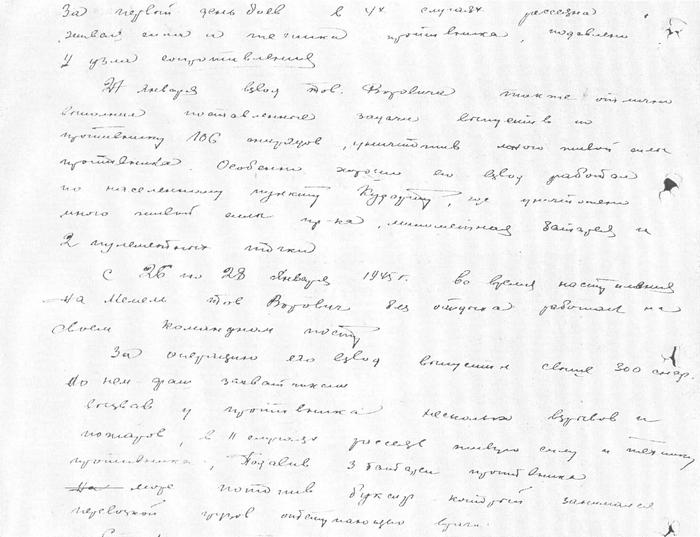 За первый день боев в 4х случаях рассеяна
живая сила и техника противника, подавлено
4 узла сопротивления
27 января взвод тов. Воровича также отлично
выполнил поставленные задачи выпустив по
противнику 106 снарядов, уничтожив много живой силы
противника. Особенно хорошо его взвод работал
по населенному пункту, где уничтожено
много живой силы пр-ка, минометная батарея и
2 пулеметных точки
С 26 по 28 Января 1945 г. во время наступления
на Мемель тов Ворович без отдыха работал на
своем командном посту
За операцию его взвод выпустил свыше 300 снар.
по нем-фаш захватчикам
вызвав у противника несколько взрывов и
пожаров, в 11 случаях рассеяв живую силу и технику
противника, Подавив 3 батареи противника
На море потопив буксир который занимался
перевозкой грузов отступающего врага.